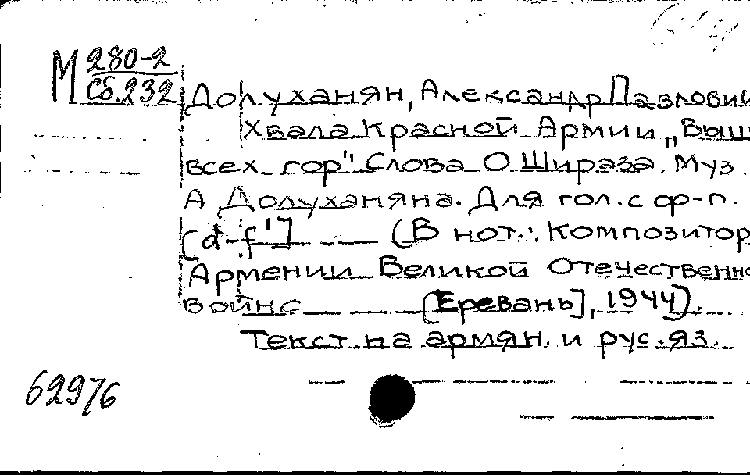 М 280-2
Сб.232
Долуханян, Александр Павлович
Хвала Красной Армии „Выш
всех гор". Слова О.Шираза. Муз.
А Долуханяна. Для гол. с ф-п.
[d'-f']
(В нот.: Композитор
Армении Великой Отечественно
войне
[Ереван], 1944).
Текст на армян. и рус.яз.
62976